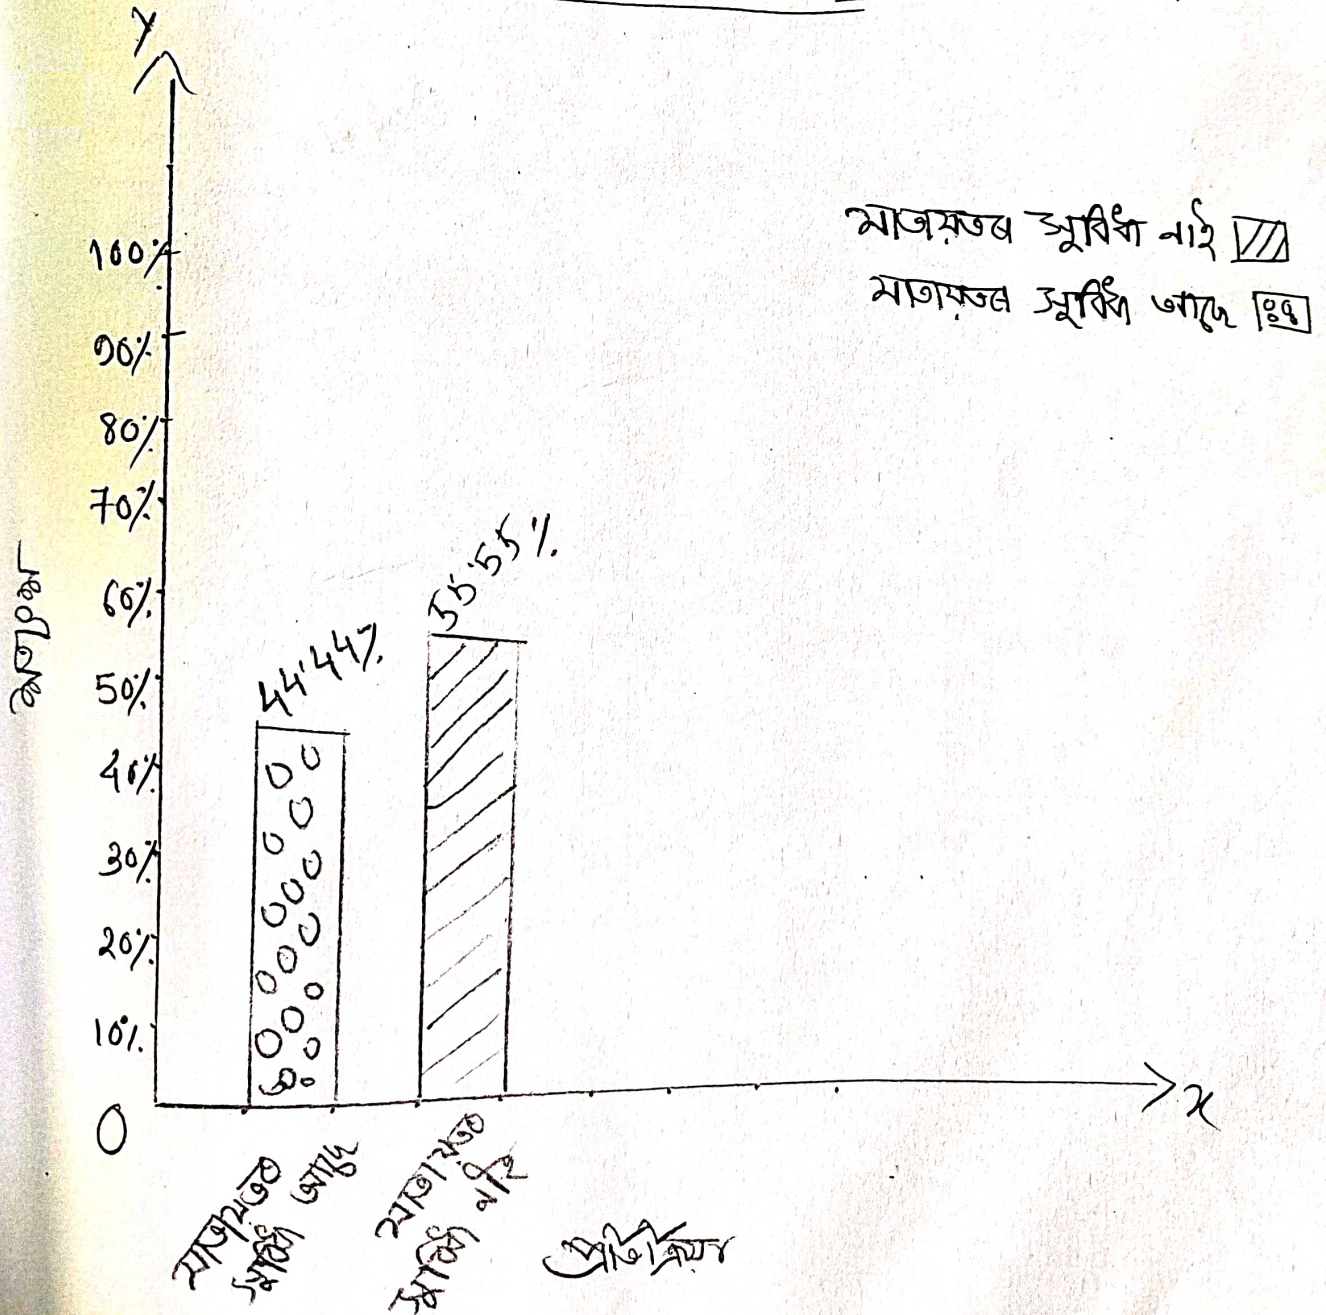 y
যাতায়তৰ সুবিধা নাই
যাতায়তৰ সুবিধা আছে
100%
90%
80%
70%
60%
50%
40%
30%
20%
10%
0
শতাংশ
44.44%
55.55%
x
যাতায়তৰ
সুবিধা আছে
যাতায়তৰ
সুবিধা নাই
প্ৰতিক্ৰিয়া